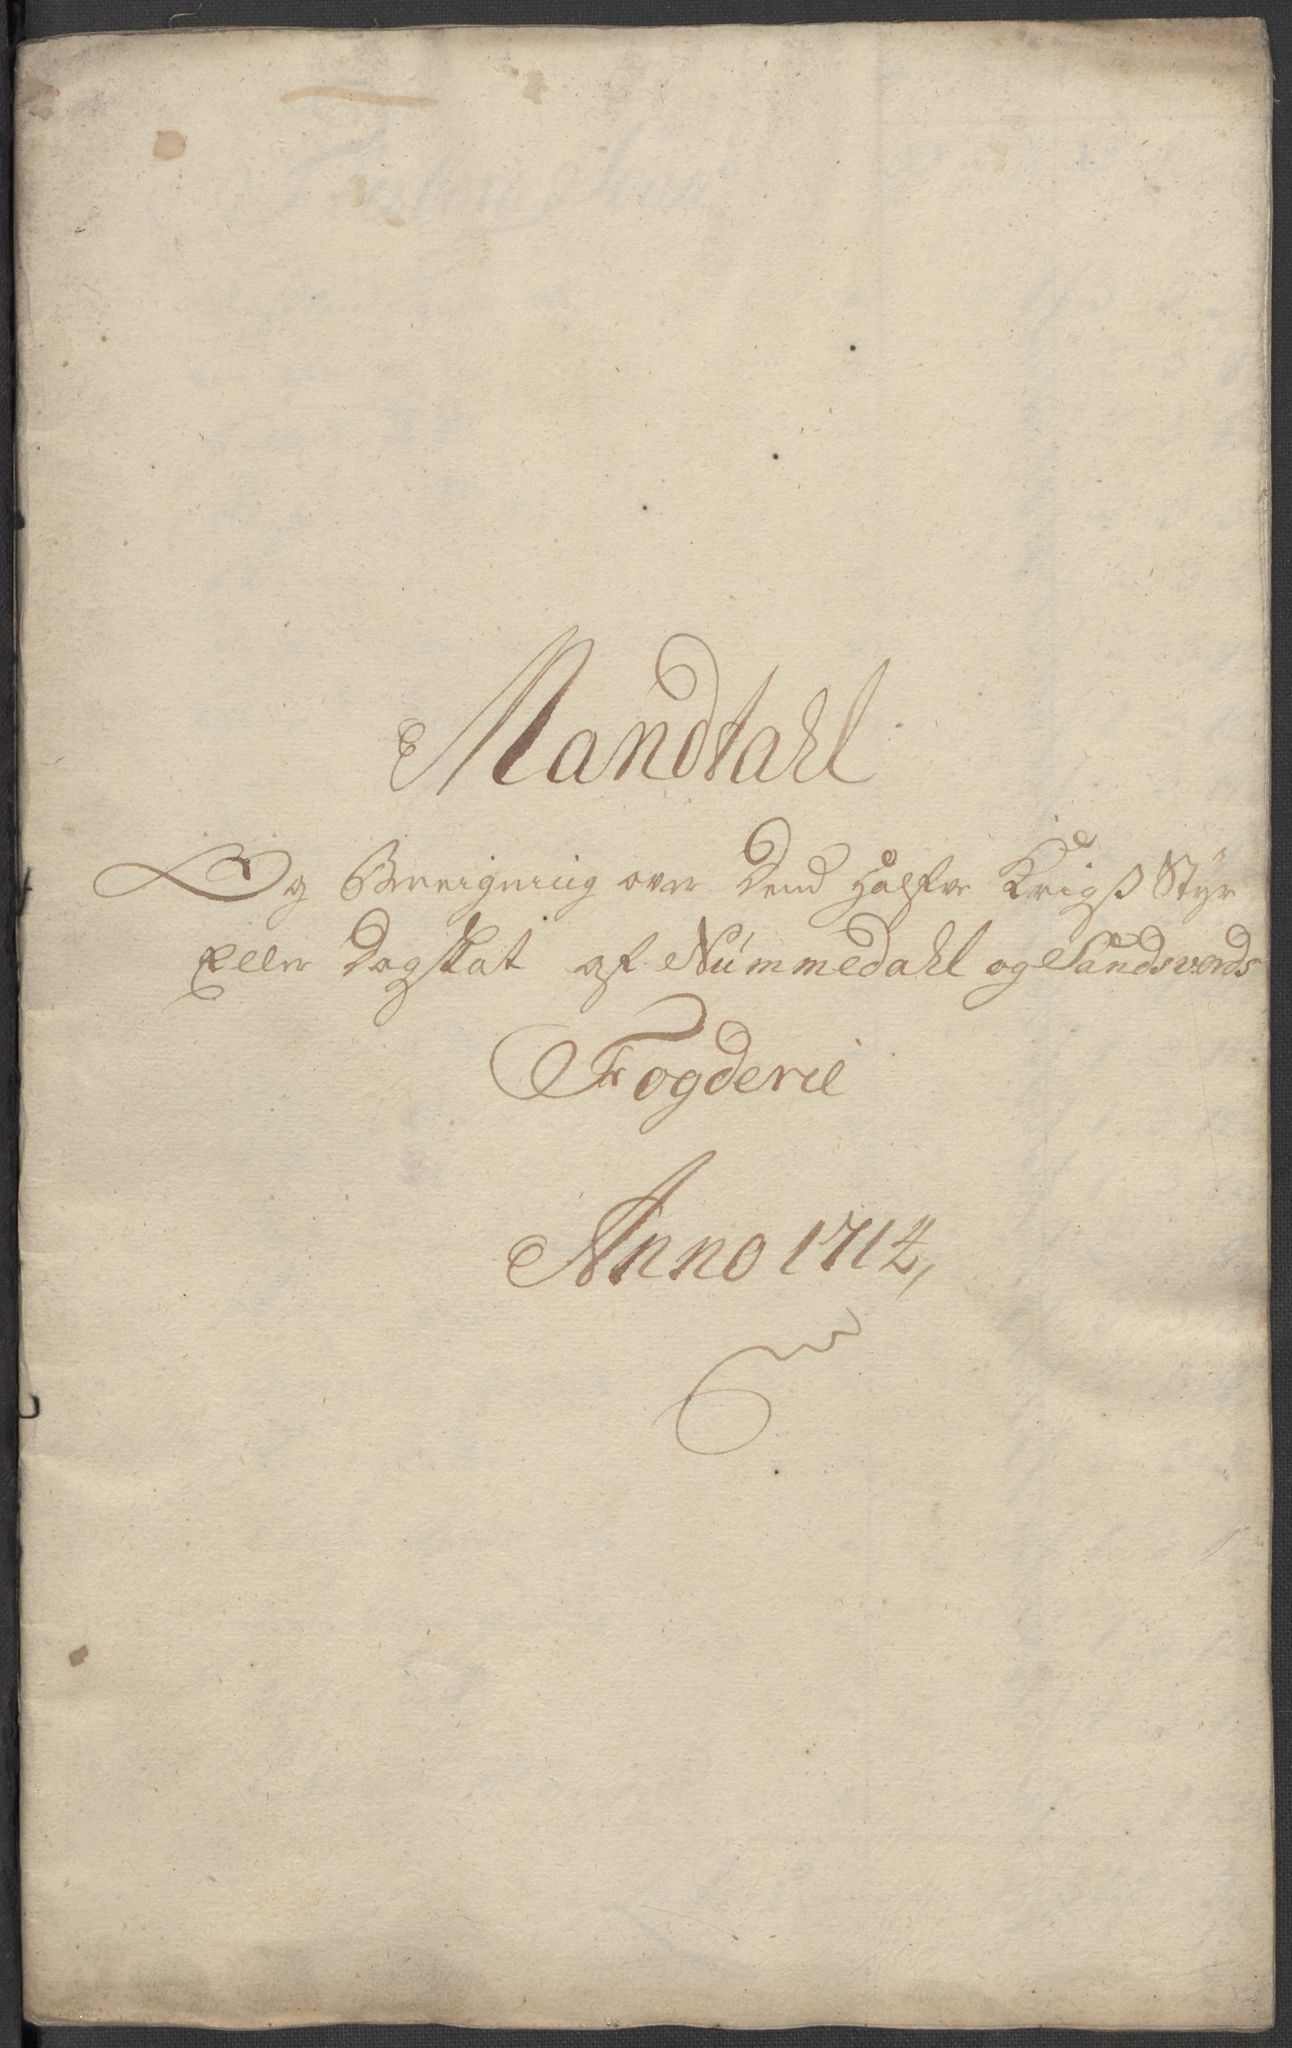 Mandtahl
Og Bereigning over Dend Halfve Krigß Styr
Eller Dagskat af Nummedahl og Sandsverds
Fogderie
Anno 1714,